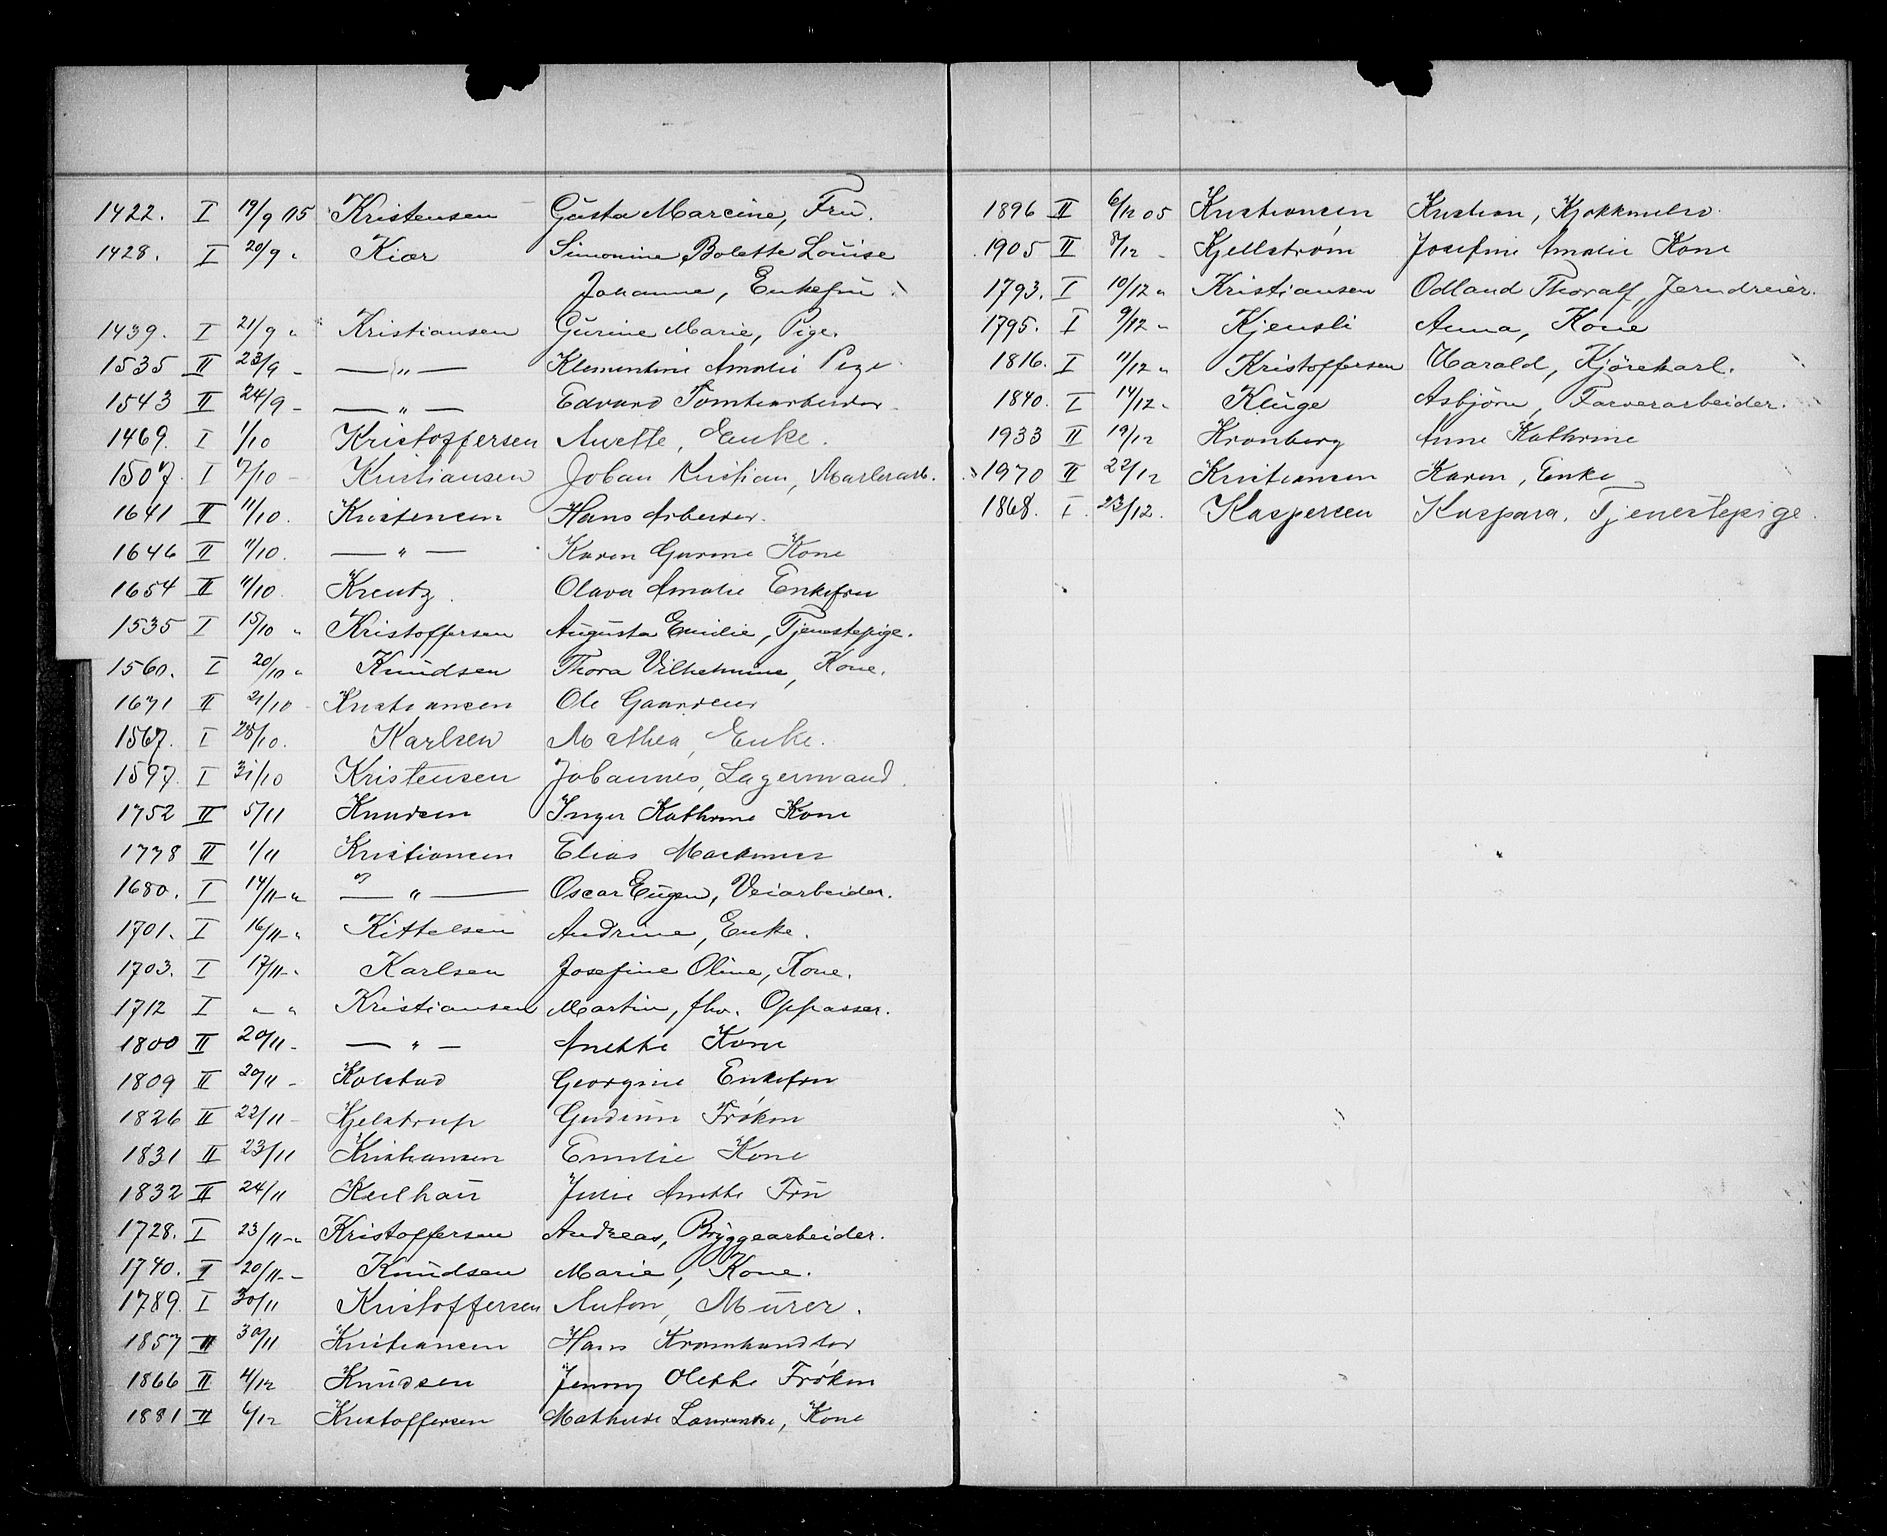 1422. I 19/9 05 Kristensen Gusta Marcine, Fru.
1428. I 20/9 " Kiær Simonine Bolette Louise
Johanne, Enkefru
1439. I 21/9 " Kristiansen Gurine Marie, Pige.
1535 II 23/9 - — " — Klementine Amalie Pige
1543 II 24/9 - — " — Edvard Tomtearbeider
1469. I 1/10 Kristoffersen Anette, Enke.
1507. I 7/10 - Kristiansen Johan Kristian, Murerarb.
1641 II 11/10. Kristensen Hans Arbeider.
1646 II 11/10. — " — Karen Gurine Kone
1654 II 11/10. Kreutz. Olava Amalie Enkefru
1535 I 15/10 " Kristoffersen Augusta Emilie, Tjenestepige.
1560. I 20/10 " Knudsen Thora Vilhelmine, Kone.
1671 II 21/10 - Kristiansen Ole Gaardeier
1567. I 28/10. Karlsen Mathea, Enke.
1597. I 31/10 Kristensen Johannes, Lagermand.
1752 II 5/11 Knudsen Inger Kathrine Kone
1778 II 1/11 Kristiansen Elias Maskinist
1680. I 14/11 - " — " — Oscar Eugen, Veiarbeider.
1701. I 16/11 - " Kittelsen Andrine, Enke.
1703. I 17/11 - " Karlsen Josefine Oline, Kone.
1712 I " " Kristiansen Martin, fhv. Oppasser.
1800 II 20/11 - — " — Anette Kone
1809 II 20/11 - Kolstad Georgine Enkefru
1826 II 22/11 - Kjelstrup Gudrun Frøken
1831 II 23/11 Kristiansen Emilie Kone
1832 II 24/11 Keilhau Julie Anette Fru
1728. I 23/11 - " Kristoffersen Andreas, Bryggearbeider.
1740. I 20/11 - - Knudsen Marie, Kone.
1789. I 30/11 Kristoffersen Anton, Murer.
1857 II 30/11 Kristiansen Hans Kramhandler
1866 II 4/12 Knudsen Jenny Olette Frøken
1881 II 6/12 Kristoffersen Mathilde Laurentse, Kone
1896 II 6/12 05 Kristiansen Kristian,
1905 II 8/12 - Kjellstrøm Josefine Amalie Kone
1793. I 10/12 " Kristiansen Odland Thoralf, Jerndreier.
1795. I 9/12 " Kjensli Anna, Kone
1816. I 11/12 " Kristoffersen Harald, Kjørekarl.
1840. I 14/12 " Kluge Asbjørn, Farverarbeider.
1933 II 19/12 Kronberg Anne Kathrine
1970 II 22/12 Kristiansen Karen, Enke
1868. I. 23/12. Kaspersen Kaspara, Tjenestepige.